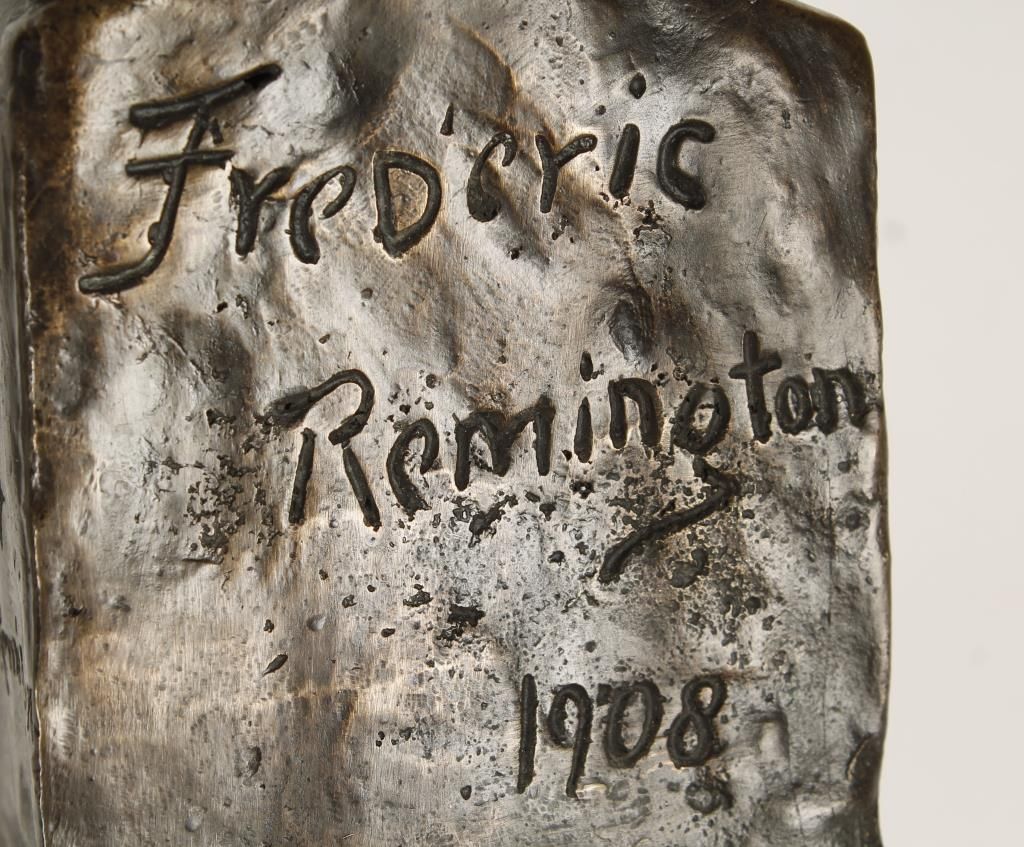 Frederic
Remington
1908